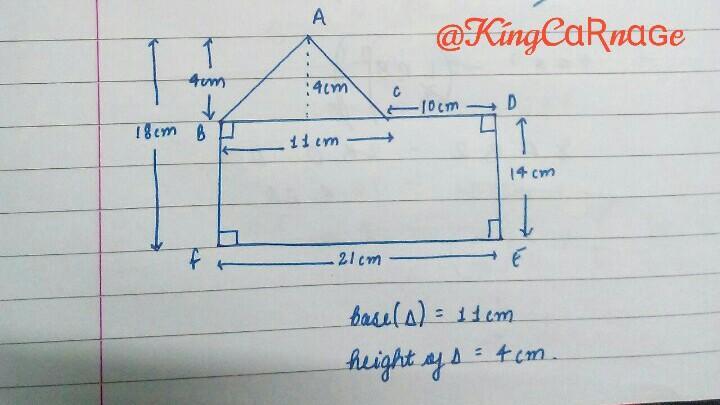 @KingCaRnaGe
A
4cm
4cm
C
10cm
D
18cm
B
11cm
14cm
f
21cm
E
base(Δ) = 11cm
height of Δ = 4cm.